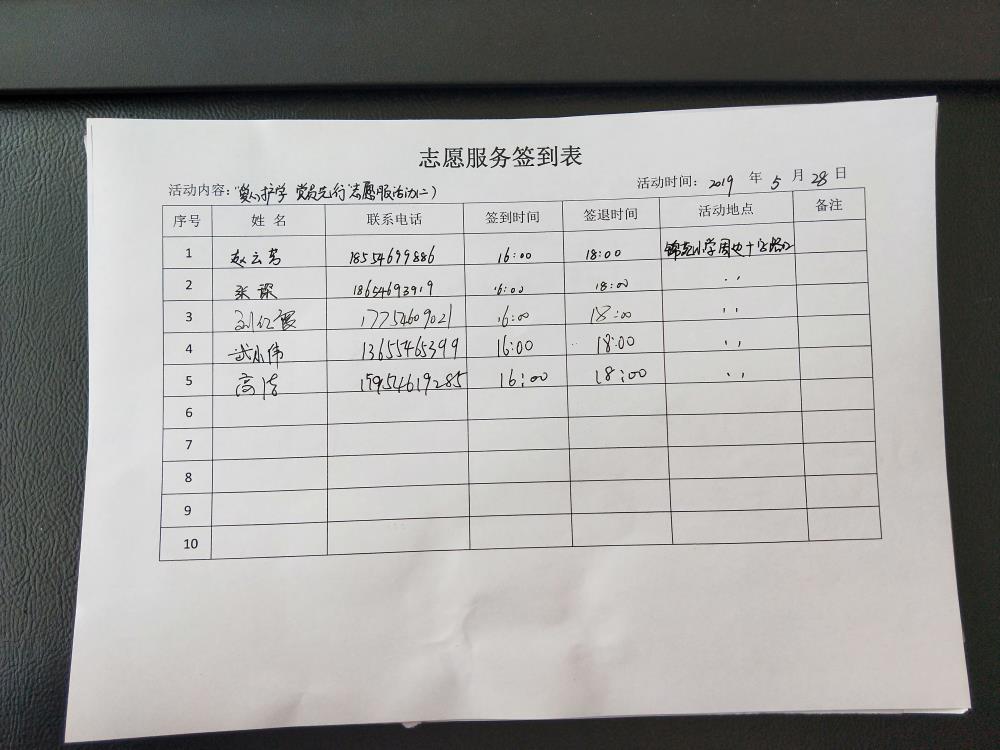 志愿服务签到表
活动内容："爱心护学 党员先行"志愿服务活动(二)
活动时间：2019 年 5 月 28 日
序号 姓 名 联系电话 签到时间 签退时间 活动地点 备注
1 赵云莺 18554699886 16:00 18:00 锦苑小学周边十字路口
2 18654693919 16:00 18:00 〃
3 刘红霞 17754609021 16:00 18:00 〃
4 武小伟 13655465399 16:00 18:00 〃
5 高洁 15954619285 16:00 18:00 〃
6
7
8
9
10